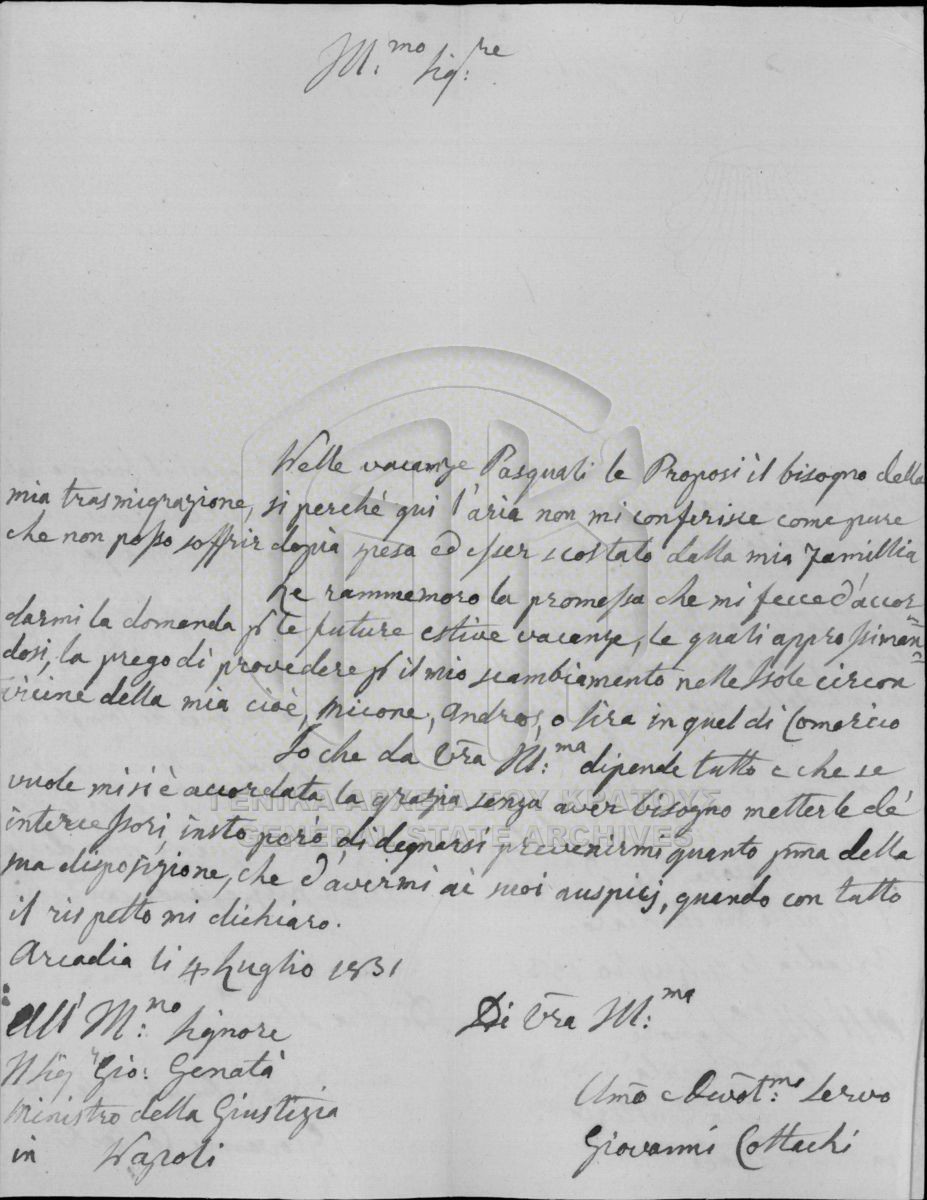 Ill:mo Sig:re
Nelle vacanze Pasquali le Proposi il bisogno della
mia trasmigrazione, si perché qui l'aria non mi conferisce come pure
che non posso soffrir dopia spesa ed esser scostato dalla mia famillia
Le rammemoro la promessa che mi fecce d'accor=
darmi la domanda p le future estive vacanze, le quali approssiman=
dosi, la prego di provedere p il mio scambiamento nelle Isole circon
vicine della mia cioè, Micone, Andros, o Sira in quel di Comercio
So che da Vra Ill:ma dipende tutto e che se
vuole mi si è accordata la grazia senza aver bisogno metterle de'
intercessori, insto però, di degnarsi prevenirmi quanto pma della
sua disposizione, che d'avermi ai suoi auspicj, quando con tutto
il rispetto mi dichiaro.
Arcadia li 4 Luglio 1831
All' Ill:mo Signore Di Vra Ill:ma
Il Sigr Gio: Genatà
Ministro della Giustizia Umo e Devot:mo Servo
in Napoli Giovanni Cottachi
ΓΕΝΙΚΑ ΑΡΧΕΙΑ ΤΟΥ ΚΡΑΤΟΥΣ
GENERAL STATE ARCHIVES